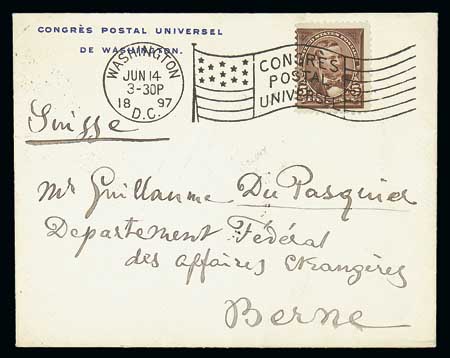 CONGRÈS POSTAL UNIVERSEL
DE WASHINGTON.
WASHINGTON
JUN 14
3-30P
18 97
D.C.
CONGRÈS
POSTAL
UNIVERSEL
Suisse
Mr Guillaume Du Pasquier
Departement Fédéral
des affaires étrangères
Berne